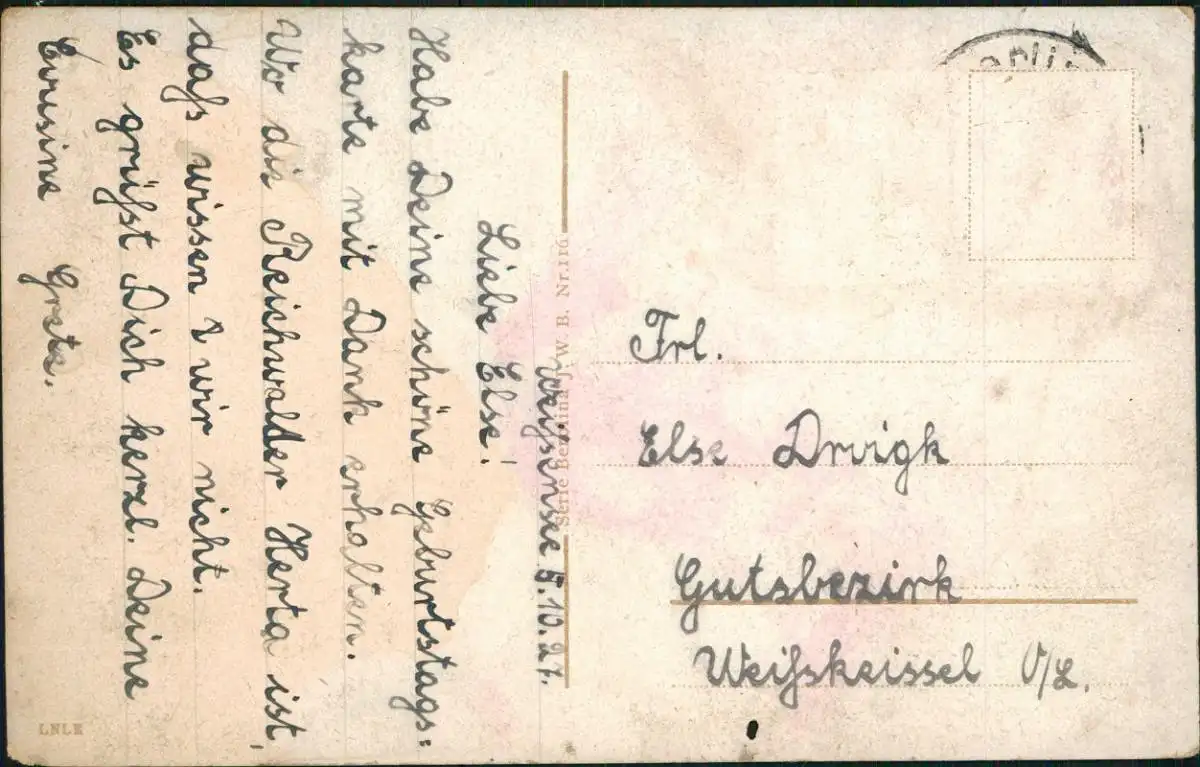 Weißensee 5.10.27.
Liebe Else!
Habe Deine schöne Geburtstags=
karte mit Dank erhalten.
Wo die Reichwalder Herta ist,
daß wissen wir nicht.
Es grüßt Dich herzl. Deine
Cousine Grete.
Serie Berolina J. W. B. Nr. 116
LNLK
Frl.
Else Drvigk
Gutsbezirk
Weißkeissel O/L.